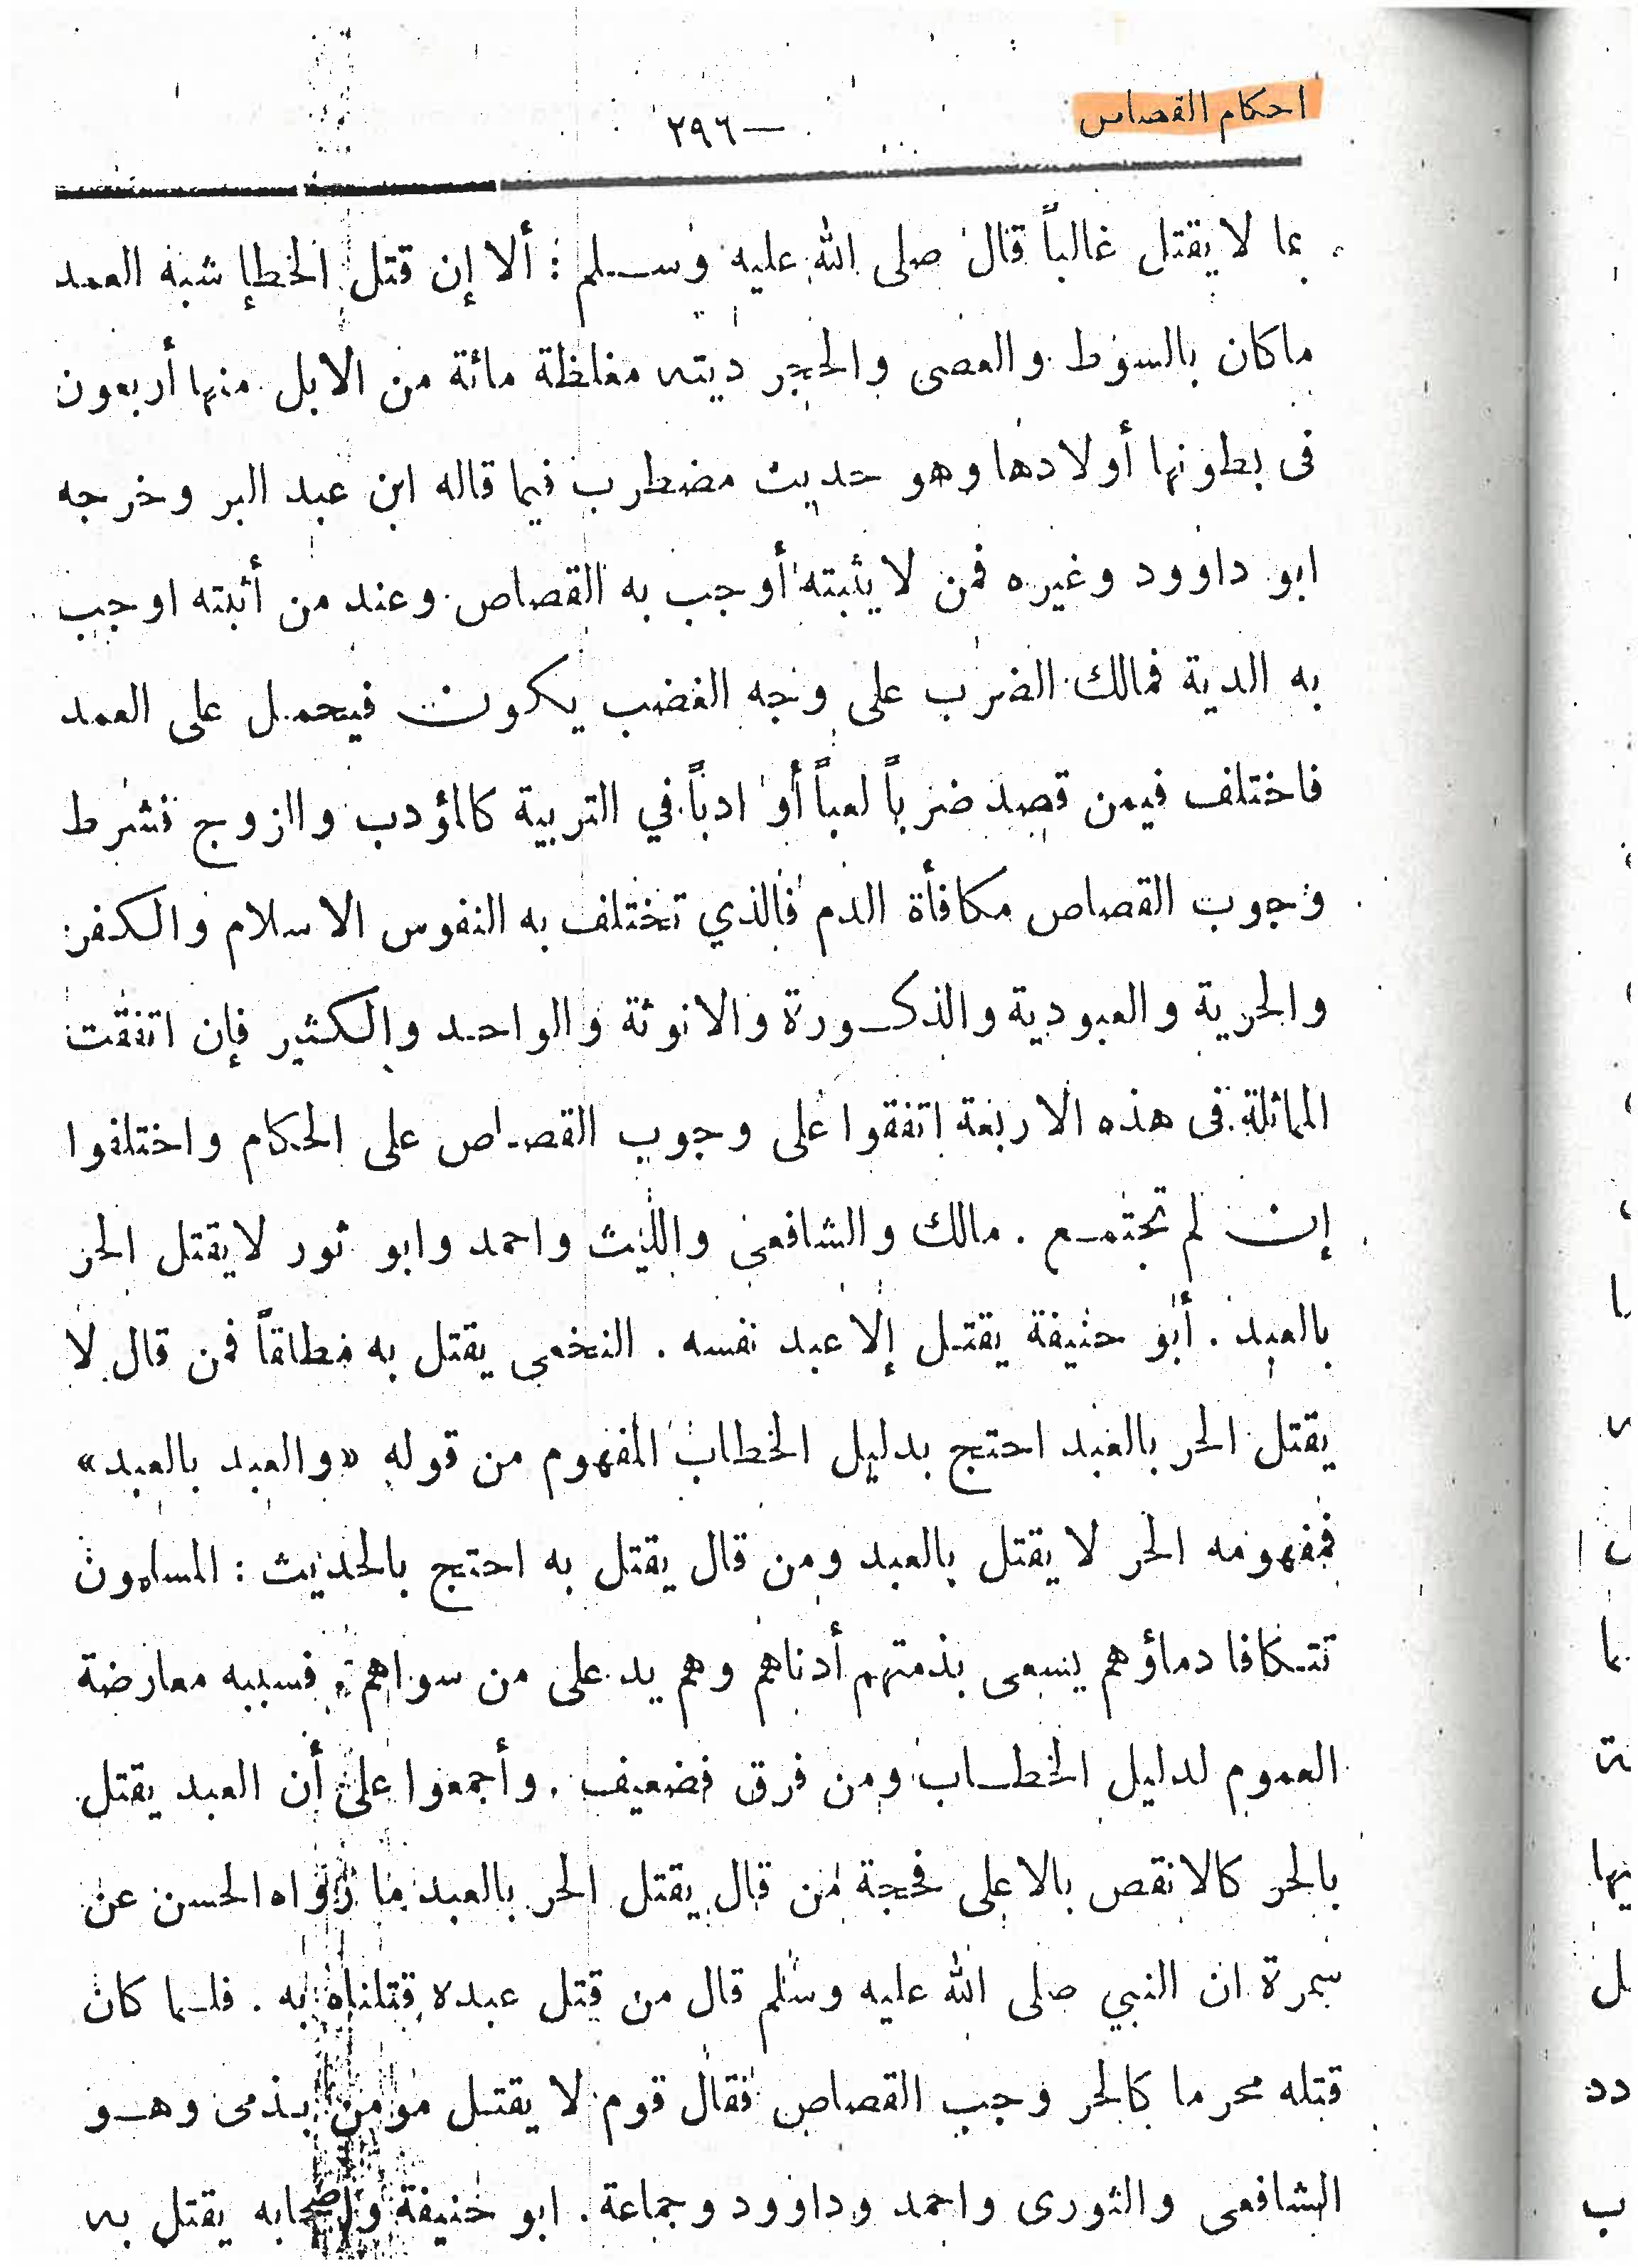 احكام القصاص
—٢٩٦
بما لا يقتل غالباً قال صلى الله عليه وسلم : ألا إن قتل الخطإ شبه العمد
ماكان بالسوط والعصى والحجر ديته مغلظة مائة من الابل منها أربعون
فى بطونها أولادها وهو حديث مضطرب فيما قاله ابن عبد البر وخرجه
ابو داوود وغيره فمن لا يثبته أوجب به القصاص وعند من أثبته اوجب
به الدية فمالك الضرب على وجه الغضب يكون فيحمل على العمد
فاختلف فيمن قصد ضرباً لعباً أو ادباً في التربية كالمؤدب والزوج فشرط
وجوب القصاص مكافأة الدم فالذي تختلف به النفوس الاسلام والكفر
والحرية والعبودية والذكورة والانوثة والواحد والكثير فإن اتفقت
المماثلة فى هذه الاربعة اتفقوا على وجوب القصاص على الحكام واختلفوا
إن لم تجتمع . مالك والشافعى والليث واحمد وابو ثور لا يقتل الحر
بالعبد . أبو حنيفة يقتل إلا عبد نفسه . النخعى يقتل به مطلقاً فمن قال لا
يقتل الحر بالعبد احتج بدليل الخطاب المفهوم من قوله «والعبد بالعبد»
فمفهومه الحر لا يقتل بالعبد ومن قال يقتل به احتج بالحديث : المسلمون
تتكافا دماؤهم يسعى بذمتهم أدناهم وهم يد على من سواهم . فسببه معارضة
العموم لدليل الخطاب ومن فرق فضعيف . وأجمعوا على أن العبد يقتل
بالحر كالانقص بالاعلى فحجة من قال يقتل الحر بالعبد ما رواه الحسن عن
سمرة ان النبي صلى الله عليه وسلم قال من قتل عبده قتلناه به . فلما كان
قتله محرما كالحر وجب القصاص فقال قوم لا يقتل مومن بذمى وهو
الشافعى والثورى واحمد وداوود وجماعة . ابو حنيفة واصحابه يقتل به